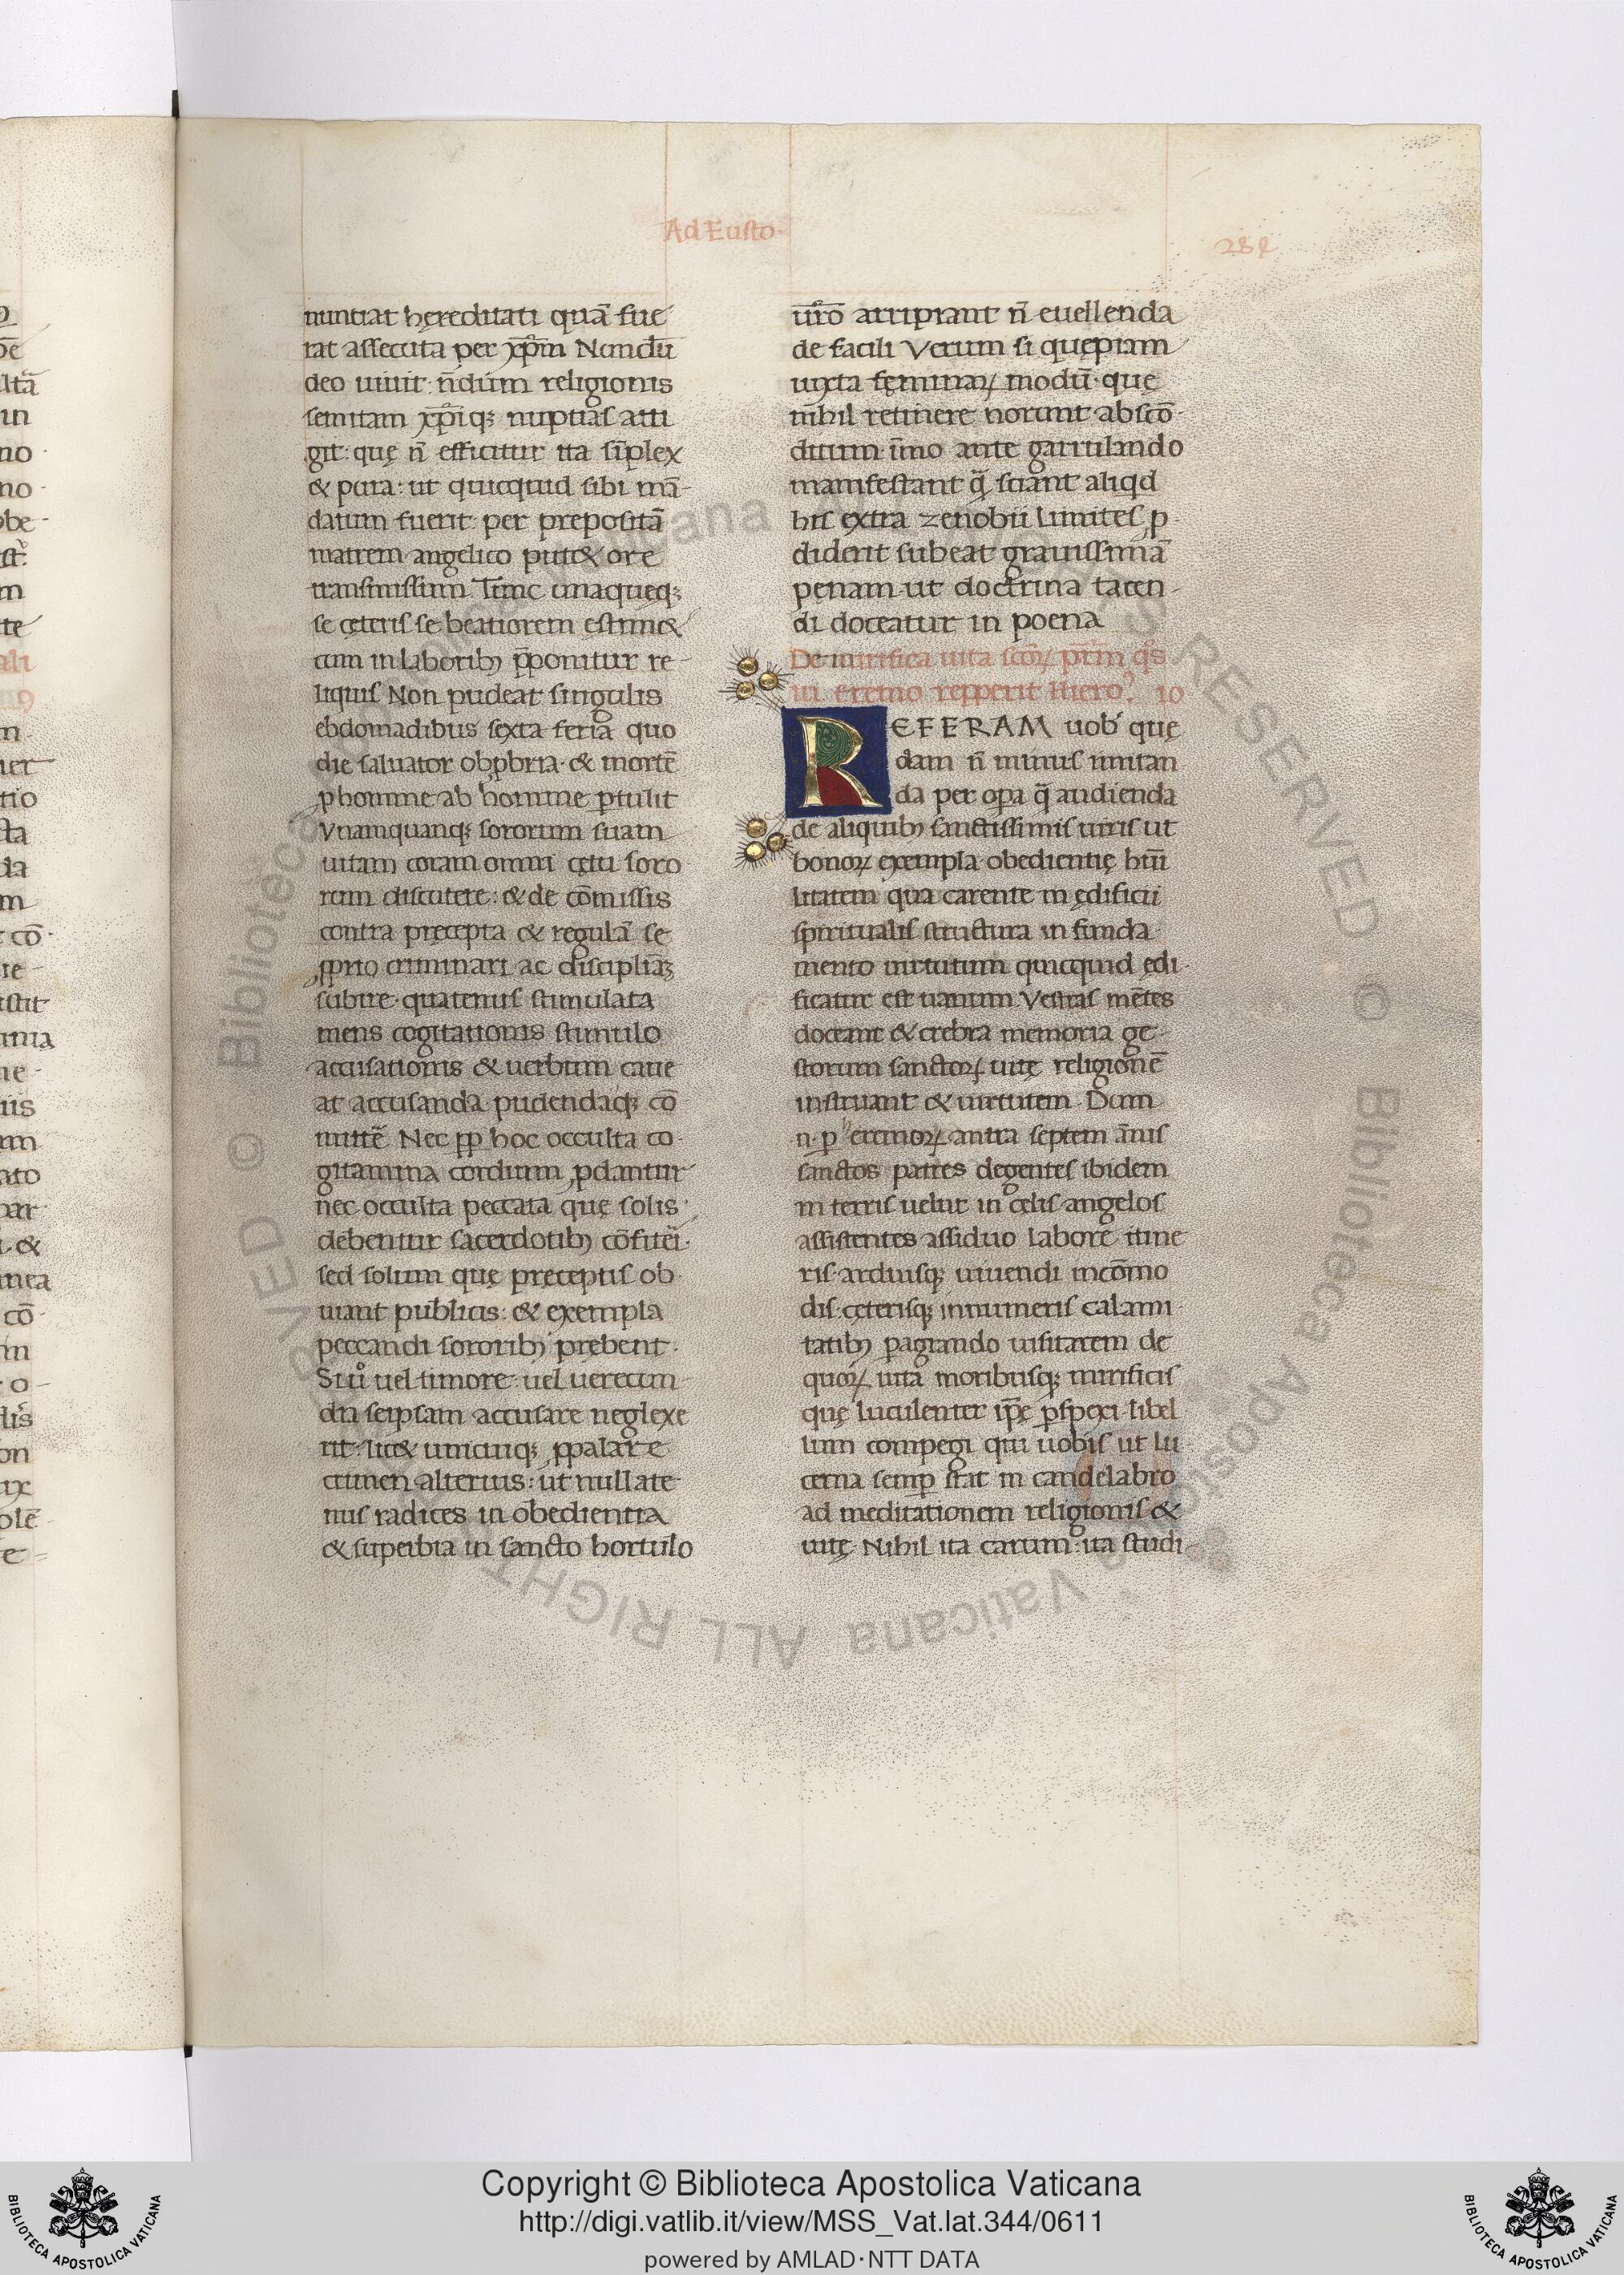 Ad Eusto·
284
nuntiat hęreditati quā fue
rat assecuta per xp̄m Nondū
deo uiuit· n̄dum religionis
semitam xp̄iq; nuptias atti
git· quę n̄ efficitur ita simplex
& pura: ut quicquid sibi mā-
datum fuerit per prepositā
matrem angelico put& ore
transmissum Tunc unaquęq;
se cęteris se beatiorem estim&
cum in laborib; p̄ponitur re-
liquis Non pudeat singulis
ebdomadibus sexta feria quo
die saluator obprbria· & mortē
p homine ab homine ptulit
Vnamquanq; sororum suam
uitam coram omni cętu soro
rum discutere: & de cōmissis
contra pręcepta & regulā se
prio criminari ac discipliā
subire· quatenus stimulata
mens cogitationis stimulo
accusationis & uerbum caue
at accusanda pudendaq; cō
mittē Nec pp hoc occulta co-
gitamina cordium pdantur
nec occulta peccata quę solis
debentur sacerdotib; cōfiteri·
sed solum quę pręceptis ob-
uiant publicis: & exempla
peccandi sororib; prębent·
Siu̇ uel timore uel uerecun-
dia seipsam accusare neglexe
rit· lic& unicuiq; ppalare
crimen alterius: ut nullate-
nus radices in obedientia
& superbia in sancto hortulo
ur̄o arripiant n̄ euellenda
de facili Verum si quępiam
iuxta fęminar modū· quę
nihil retinere norunt abscō-
ditum· īmo ante garrulando
manifestant q̄ sciant aliqd
his extra zenobii limites p
diderit subeat grauissimā
pęnam· ut doctrina tacen-
di doceatur in poena
De mirifica uita scōr patrm q̄s
in Eremo repperit Hiero? 10
REFERAM uob' quę
dam n̄ minus imitan
da per opa q̄ audienda
de aliquib; sanctissimis uiris ut
bonor exempla obedientię hūī
litatem qua carente in ędificii
spiritualis structura in funda
mento uirtutum quicquid ędi-
ficatur est uanum Vestras mētes
doceant & crebra memoria ge-
storum sanctor uitę religionē
instruant & uirtutem· Dum
n· p eremor antra septem ānis
sanctos patres degentes ibidem
in terris uelut in cęlis angelos
assistentes assiduo labore itine
ris· arduisq; uiuendi incōmo
dis· cęterisq; innumeris calami-
tatib; pagrando uisitarem de
quor uita moribusq; mirificis
quę luculenter ip̄e pspexi· libel
lum compegi qui uobis ut lu-
cerna semp stat in candelabro
ad meditationem religionis &
uitę· Nihil ita carum· ita studi-
Copyright © Biblioteca Apostolica Vaticana
http://digi.vatlib.it/view/MSS_Vat.lat.344/0611
powered by AMLAD·NTT DATA
BIBLIOTECA APOSTOLICA VATICANA
BIBLIOTECA APOSTOLICA VATICANA